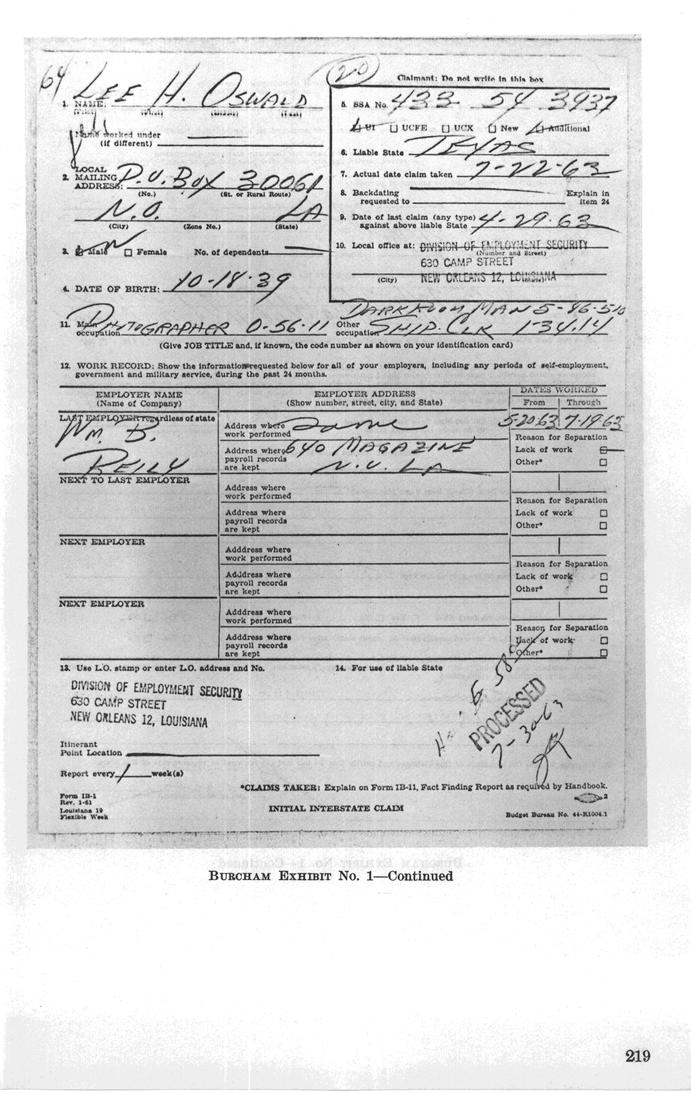 64 LEE H. OSWALD
1. NAME:
(First) (Middle) (Last)
Name worked under
(if different)
LOCAL
2. MAILING P.O. BOX 30061
ADDRESS:
(No.) (St. or Rural Route)
N.O. LA
(City) (Zone No.) (State)
3. Male Female No. of dependents
4. DATE OF BIRTH: 10-18-39
20 Claimant: Do not write in this box
5. SSA No. 433 54 3937
UI UCFE UCX New Additional
6. Liable State TEXAS
7. Actual date claim taken 7-22-63
8. Backdating Explain in
requested to item 24
9. Date of last claim (any type) 4-29-63
against above liable State
10. Local office at: DIVISION OF EMPLOYMENT SECURITY
(Number and Street)
630 CAMP STREET
(City) NEW ORLEANS 12, LOUISIANA
DARKROOM MAN 5-86.510
11. Main PHOTOGRAPHER 0-56-11 Other SHIP. CLK 1-34.14
occupation occupation
(Give JOB TITLE and, if known, the code number as shown on your identification card)
12. WORK RECORD: Show the information requested below for all of your employers, including any periods of self-employment,
government and military service, during the past 24 months.
EMPLOYER NAME
(Name of Company)
EMPLOYER ADDRESS
(Show number, street, city, and State)
DATES WORKED
From Through
LAST EMPLOYER regardless of state
Wm. B.
REILY
Address where Same
work performed
Address where 640 MAGAZINE
payroll records N.O. LA
are kept
5-20-63 7-19-63
Reason for Separation
Lack of work
Other*
NEXT TO LAST EMPLOYER
Address where
work performed
Address where
payroll records
are kept
Reason for Separation
Lack of work
Other*
NEXT EMPLOYER
Adddress where
work performed
Address where
payroll records
are kept
Reason for Separation
Lack of work
Other*
NEXT EMPLOYER
Address where
work performed
Address where
payroll records
are kept
Reason for Separation
Lack of work
Other*
13. Use L.O. stamp or enter L.O. address and No.
DIVISION OF EMPLOYMENT SECURITY
630 CAMP STREET
NEW ORLEANS 12, LOUISIANA
14. For use of liable State
PROCESSED
7-30-63
Itinerant
Point Location
Report every 1 week(s)
*CLAIMS TAKER: Explain on Form IB-11, Fact Finding Report as required by Handbook.
Form IB-1
Rev. 1-61
Louisiana 19
Flexible Week
INITIAL INTERSTATE CLAIM
2
Budget Bureau No. 44-R1004.1
BURCHAM EXHIBIT No. 1—Continued
219